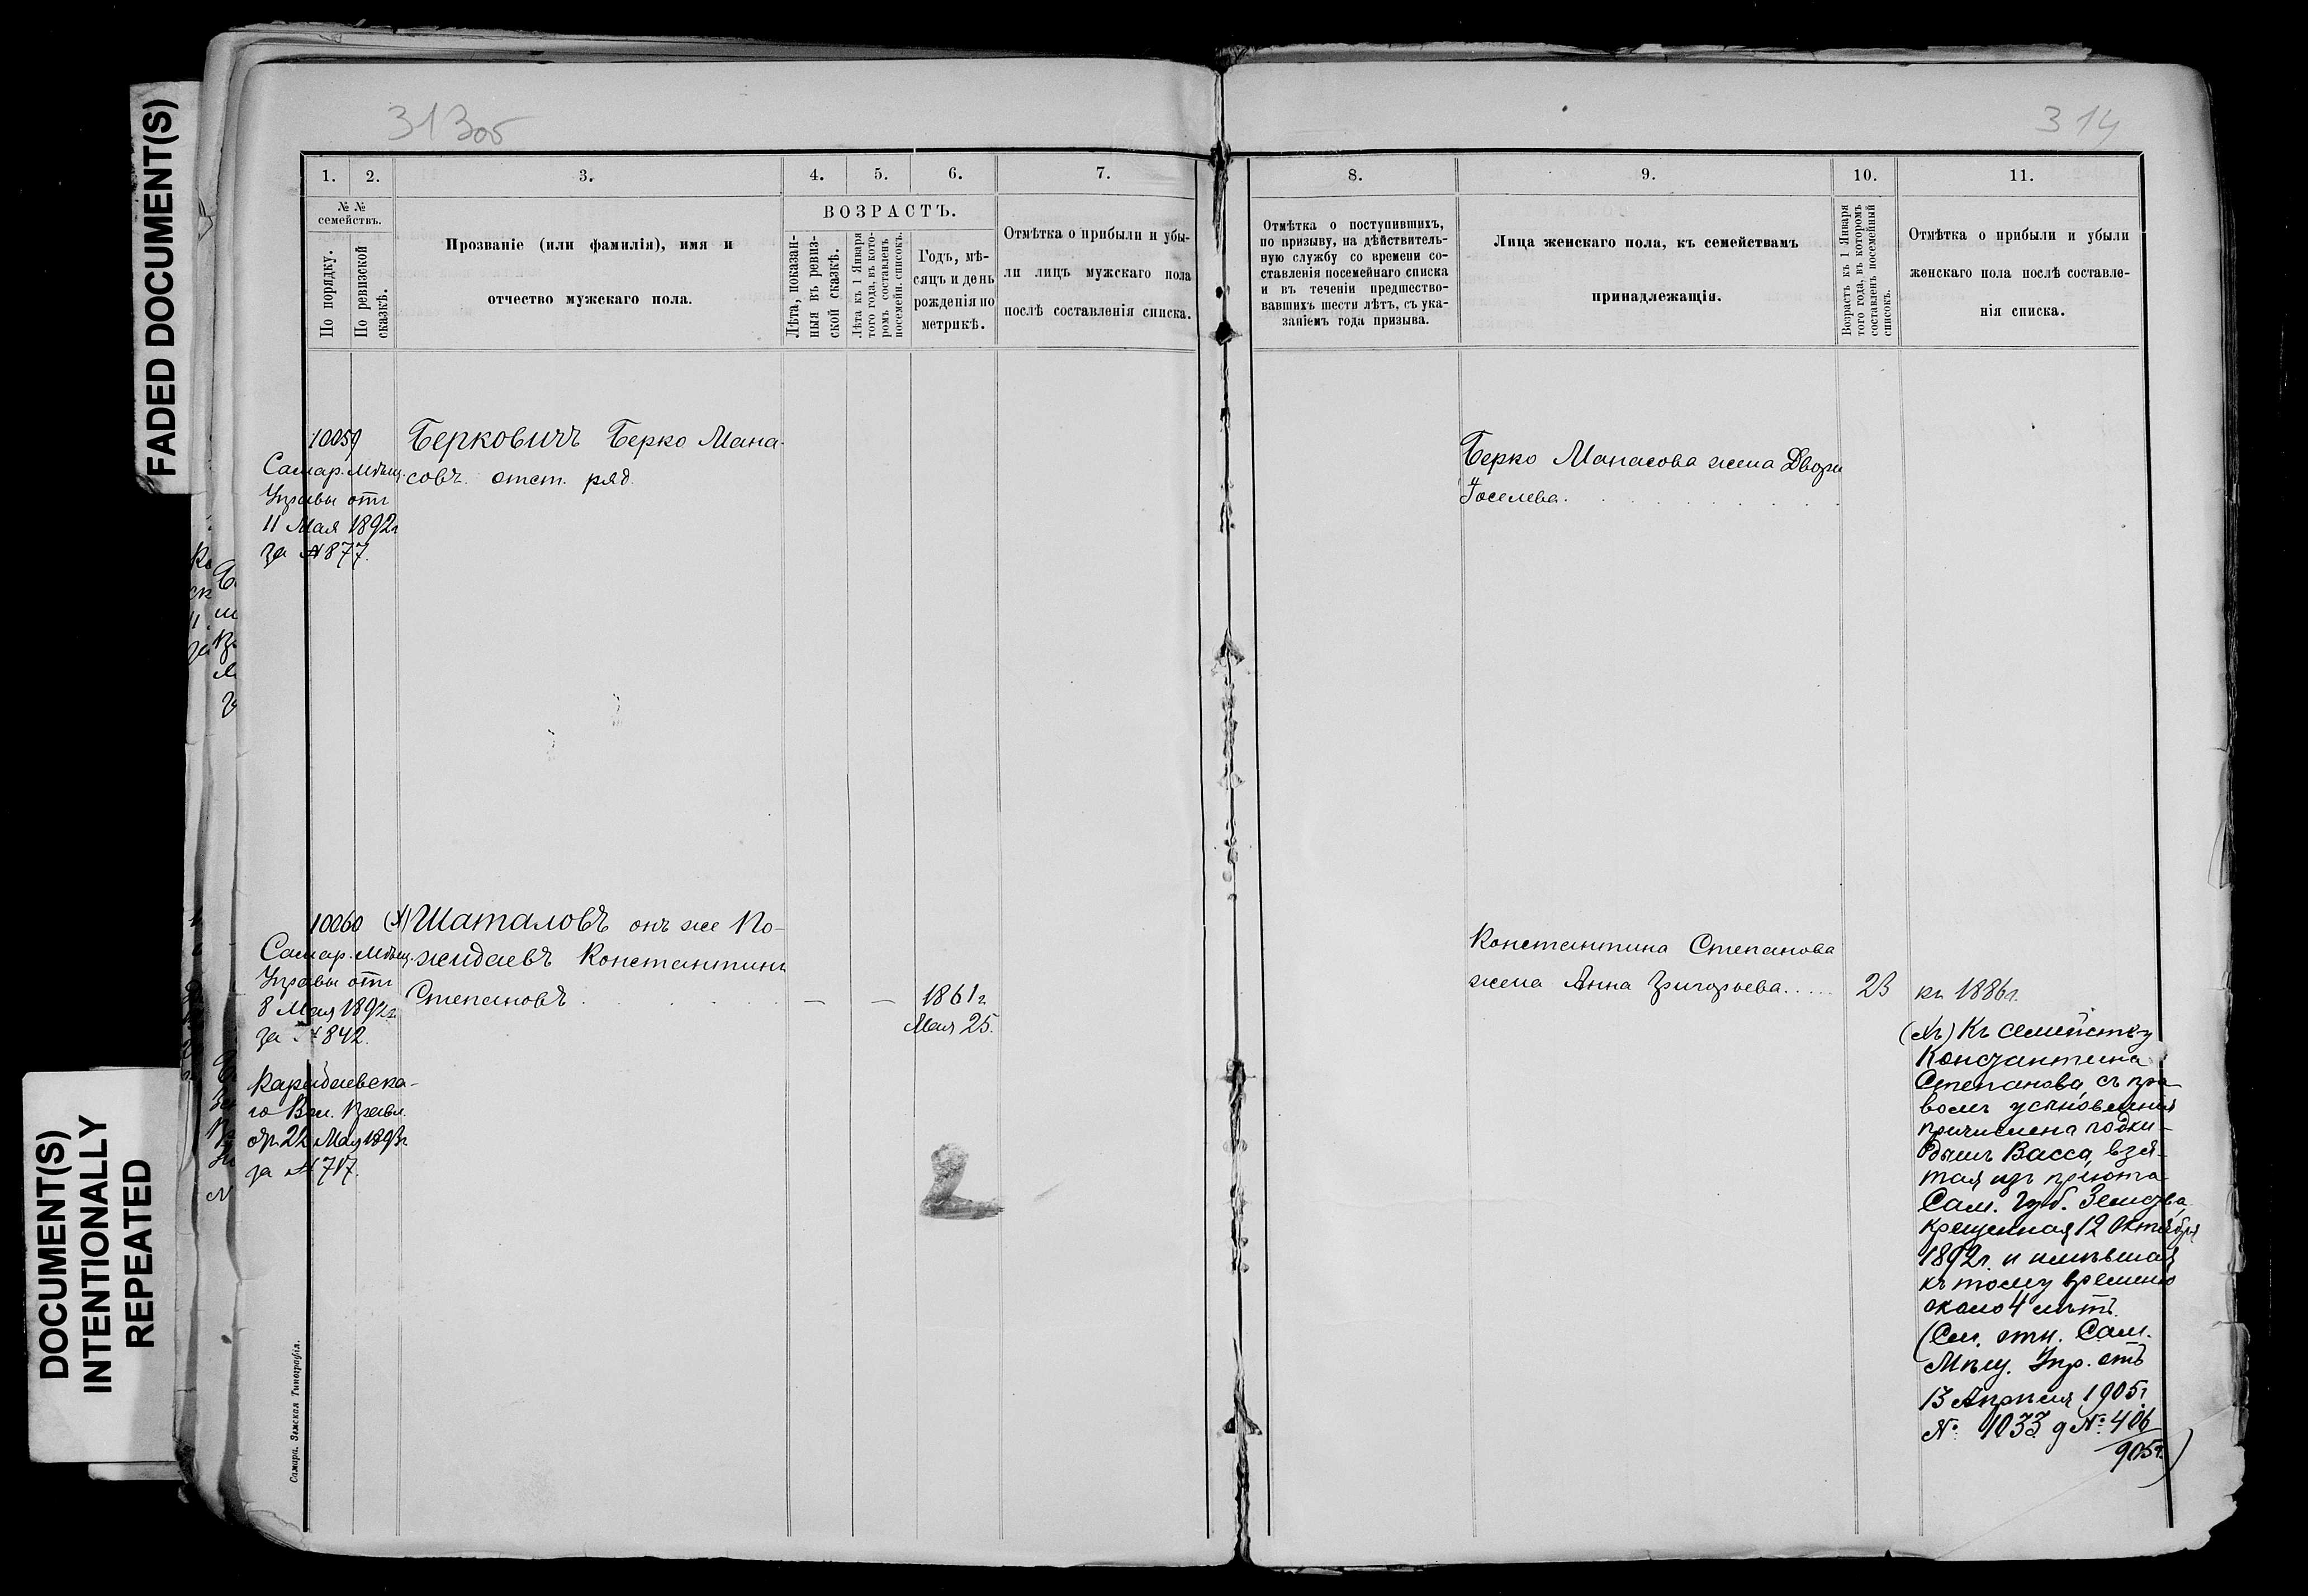 FADED DOCUMENT(S)
DOCUMENT(S)
INTENTIONALLY
REPEATED
313об
1. 2. 3. 4. 5. 6. 7.
№ №
семействъ.
По порядку.
По ревизской
сказкѣ.
Прозваніе (или фамилія), имя и
отчество мужскаго пола.
ВОЗРАСТЪ.
Лѣта, показан-
ныя въ ревиз-
ской сказкѣ.
Лѣта къ 1 Января
того года, въ кото-
ромъ составленъ
посемейн. списокъ.
Годъ, мѣ-
сяцъ и день
рожденія по
метрикѣ.
Отмѣтка о прибыли и убы-
ли лицъ мужскаго пола
послѣ составленія списка.
10059
Самар. Мѣщ.
Управы отъ
11 Мая 1892г
за №877.
Берковичъ Берко Мана-
совъ. отст. ряд.
10060
Самар. Мѣщ.
Управы отъ
8 Мая 1892г
за №842.
Шаталовъ онъ же По-
жидаевъ Константинъ
Степановъ
— — 1861г.
Мая 25.
го Вол. Правл.
22 Мая 1893г
за № 717.
Самара. Земская Типографія.
314
8. 9. 10. 11.
Отмѣтка о поступившихъ,
по призыву, на дѣйствитель-
ную службу со времени со-
ставленія посемейнаго списка
и въ теченіи предшество-
вавшихъ шести лѣтъ, съ ука-
заніемъ года призыва.
Лица женскаго пола, къ семействамъ
принадлежащія.
Возрастъ къ 1 Января
того года, въ которомъ
составленъ посемейный
списокъ.
Отмѣтка о прибыли и убыли
женскаго пола послѣ составле-
нія списка.
Берко Манасова жена Двора
Іоселева.
Константина Степанова
жена Анна Григорьева.....
23
къ 1886г.
Къ семейству
Константина
Степанова, съ пра-
вомъ усыновленія
причислена подки-
дышъ Васса, взя-
тая изъ пріюта
Сам. Губ. Земства,
крещенная 12 Октября
1892г. и имѣвшая
къ тому времени
около 4 лѣтъ.
(См. отн. Сам.
Мѣщ. Упр. отъ
13 Апрѣля 1905г
№ 1033 д № 406
905г.)